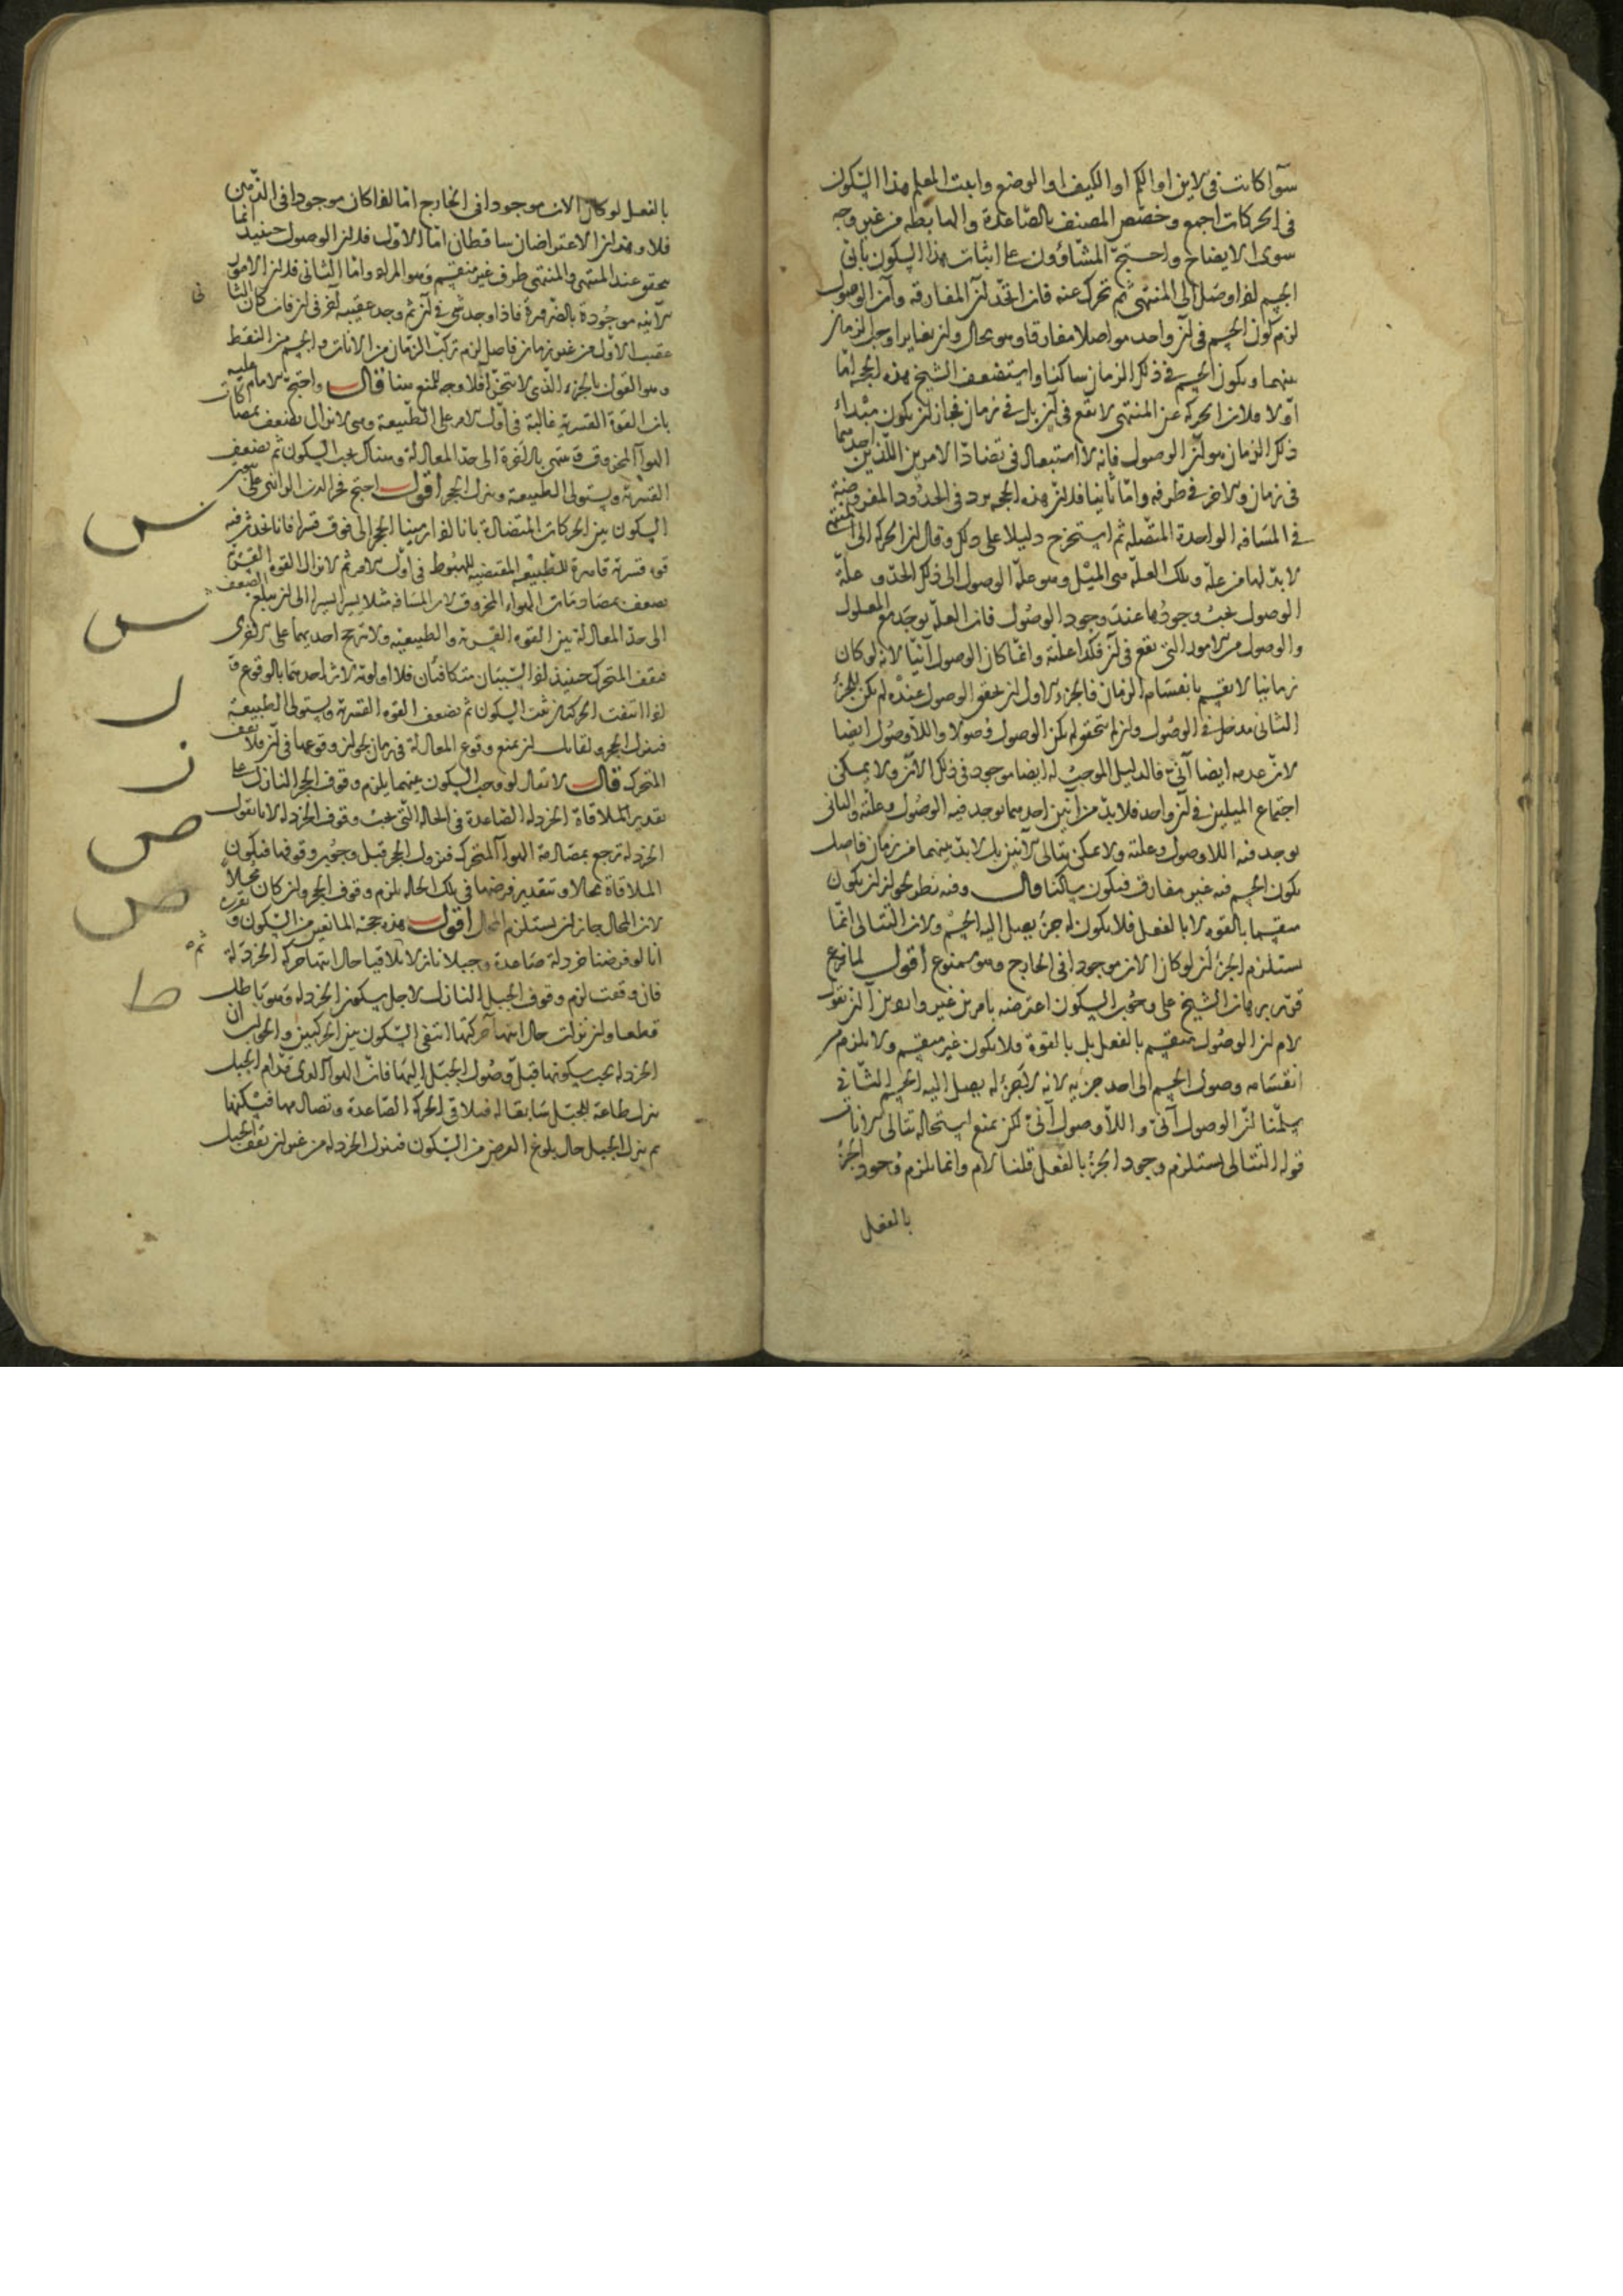 سوآ كانت فى الاين او الكم او الكيف او الوضع واثبت المعلم هذا السكون
فى الحركات اجمع وخصّص المصنف بالصّاعدة والهابطه من غير وجه
سوى الايضاح واحتجّ المشّاؤون على اثبات هذا السكون بانّ
الجسم اذا وصل الى المنتهى ثم تحرك عنه فان اتحد ان المفارقه وان الوصول
لزم كون الجسم فى ان واحد مواصلا مفارقا وهو محال وان تغايرا وجب زمان
بينهما ويكون الجسم فى ذلك الزمان ساكنا واستضعف الشيخ هذه الحجه امّا
اوّلا فلان الحركه عن المنتهى لا تقع فى آن بل فى زمان فجاز ان يكون مبداء
ذلك الزمان هو ان الوصول فانه لا استبعاد فى تضادّ الامرين اللّذين احدهما
فى زمان والاخر فى طرفه وامّا ثانيا فلان هذه الحجه ترد فى الحدود المفروضة
فى المسافه الواحدة المتّصله ثم استخرج دليلا على ذلك وقال ان الحركه الى المنتهى
لا بدّ لها من علّة وتلك العلّه هى الميل وهو علّة الوصول الى ذلك الحدّ و علّة
الوصول يجب وجودها عند وجود الوصول فان العلّه توجد مع المعلول
والوصول من الامور التى تقع فى آن فكذا علته وانما كان الوصول آنيّا لانه لو كان
زمانيا لانقسم بانقسام الزمان فالجزء الاول ان تحقق الوصول عنده لم يكن للجزء
الثانى مدخل فى الوصول وان لم يتحقق لم يكن الوصول وصولا واللاوصول ايضا
لانّ عدمه ايضا آنىّ فالدليل الموجب له ايضا موجود فى ذلك الان ولا يمكن
اجتماع الميلين فى ان واحد فلا بدّ من آنين احدهما يوجد فيه الوصول وعلته والثانى
يوجد فيه اللاوصول وعلته ولا يمكن تتالى الانين بل لا بد بينهما من زمان فاصل
يكون الجسم فيه غير مفارق فيكون ساكنا قال وفيه نظر لجواز ان يكون
منقسما بالقوه لا بالفعل فلا يكون له جزء يصل اليه الجسم ولان التتالى انّما
يستلزم الجزء ان لو كان الان موجودا فى الخارج وهو ممنوع أقول لما فرغ
من برهان الشيخ على وجوب السكون اعترضه بامرين غير واردين آ ان نقول
لا م ان الوصول منقسم بالفعل بل بالقوة فلا يكون غير منقسم ولا يلزم من
انقسامه وصول الجسم الى احد جزئيه لانه لا جزء له يصل اليه الجسم الثانى
سلّمنا انّ الوصول آنىّ واللاّوصول آنىّ لكن نمنع استحاله تتالى الانات
قوله التتالى يستلزم وجود الجزء بالفعل قلنا لا م وانما يلزم وجود الجزء
بالفعل
بالفعل لو كان الان موجودا فى الخارج امّا اذا كان موجودا فى الذّهن
فلا وهذان الاعتراضان ساقطان امّا الاوّل فلان الوصول حينئذ انّما
يتحقق عند المنتهى والمنتهى طرف غير منقسم وهو المراد وامّا الثانى فلان الامور
الانيه موجودة بالضرورة فاذا وجد شى فى آن ثم وجد عقيبه آخر فى ان فان كان الثا
نى
عقيب الاوّل من غير زمان فاصل لزم تركّب الزمان من الانات والجسم من النقط
وهو القول بالجزء الذى لا يتجزّأ فلا وجه للمنع هنا قال واحتجّ الامام عليه
بان القوة القسرية غالبة فى اوّل الامر على الطّبيعة وهى لا تزال تضعف بمصاكات
الهوآ المخروق فتنتهى بالاخرة الى حدّ المعادلة وهناك يجب السكون ثم تضعف
القسرية وتستولى الطبيعة وينزل الحجر أقول احتج فخر الدين الرازى على ثبوت
السكون بين الحركات المتضادّة بانا اذا رمينا الحجر الى فوق قسرا فانا نحدث فيه
قوه قسرية قاسرة للطّبيعه المقتضيه للهبوط فى اوّل الامر ثم لا تزال القوه القسرية
تضعف بمصادمات الهواء المخروق لان المسافه مثلا يسيرا يسيرا الى ان يبلغ الضعف
الى حدّ المعادلة بين القوه القسريه والطبيعيه ولا ترجّح احديهما على الاخرى
فيقف المتحرك حينئذ اذ السّببان متكافئان فلا اولويه لاثر احدهما بالوقوع و
اذا انتفت الحركتان ثبت السكون ثم تضعف القوه القسرية وتستولى الطبيعة
فينزل الحجر ولقائل ان يمنع وقوع المعادلة فى زمان لجواز وقوعها فى آن فلا يقف
المتحرك قال لا يقال لو وجب السكون بينهما يلزم وقوف الحجر النازل على
تقدير الملاقاة الخردله الصّاعدة فى الحاله الّتى يجب وقوف الخردله لانا نقول
الخردلة ترجع بمصادمة الهوآ المتحرك بنزول الحجر قبل وجوب وقوفها فيكون
الملاقاة محالا وبتقدير فرضها فى تلك الحاله يلزم وقوف الحجر وان كان محالا
لان المحال جاز ان يستلزم المحال أقول هذه حجّة المانعين من السّكون و تقريره
انا لو فرضنا خردلة صاعدة وجبلا نازلا تلاقيا حال انتهاء حركة الخردلة ثمه
فان وقفت لزم وقوف الجبل النازل لاجل سكون الخردله وهو باطل
قطعا وان نزلت حال انتهاء حركتها انتفى السّكون بين الحركتين والجواب ان
الخردله يجب سكونها قبل وصول الجبل اليها فانّ الهوآ الذى قدّام الجبل
ينزل طاعة للجبل سابقا له فيلاقى الحركه الصّاعدة وتصادمها فيسكنها
ثم ينزل الجبل حال بلوغ الغرض من السّكون فينزل الخردله من غير ان يقف الجبل
س
س
ل
ن
ص
ص
ط